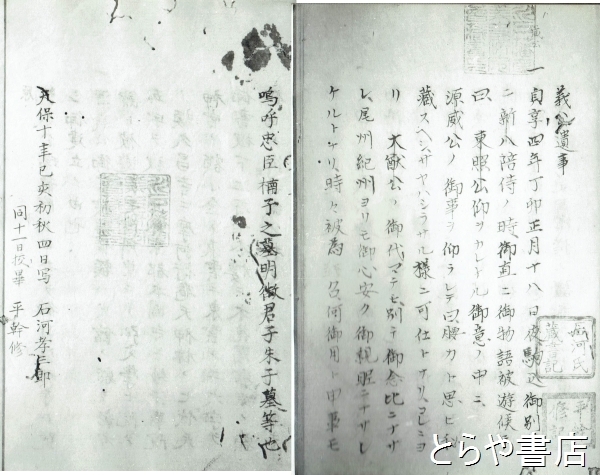 義公遺事
一貞享四年丁卯正月十八日夜駒込御別
ニ新八陪侍ノ時御直ニ御物語被遊候
曰東照公仰ヲカレトル御意ノ中ニ
源威公ノ御事ヲ仰ラレテ曰腰カト思ヒ
蔵スヘシサヤハシラサル様ニ可仕トナリコレニヨ
リ大猷公ノ御代マテモ別テ御念比ニナサ
レ尾州紀州ヨリモ御心安ク御親昵ニナサレ
ケルトナリ時々被為召何御用ト申事モ
嗚呼忠臣楠子之墓明徴君子朱子墓等也
天保十年己亥初秋四日写 石河幸三郎
同十一日校畢 平幹修
とらや書店